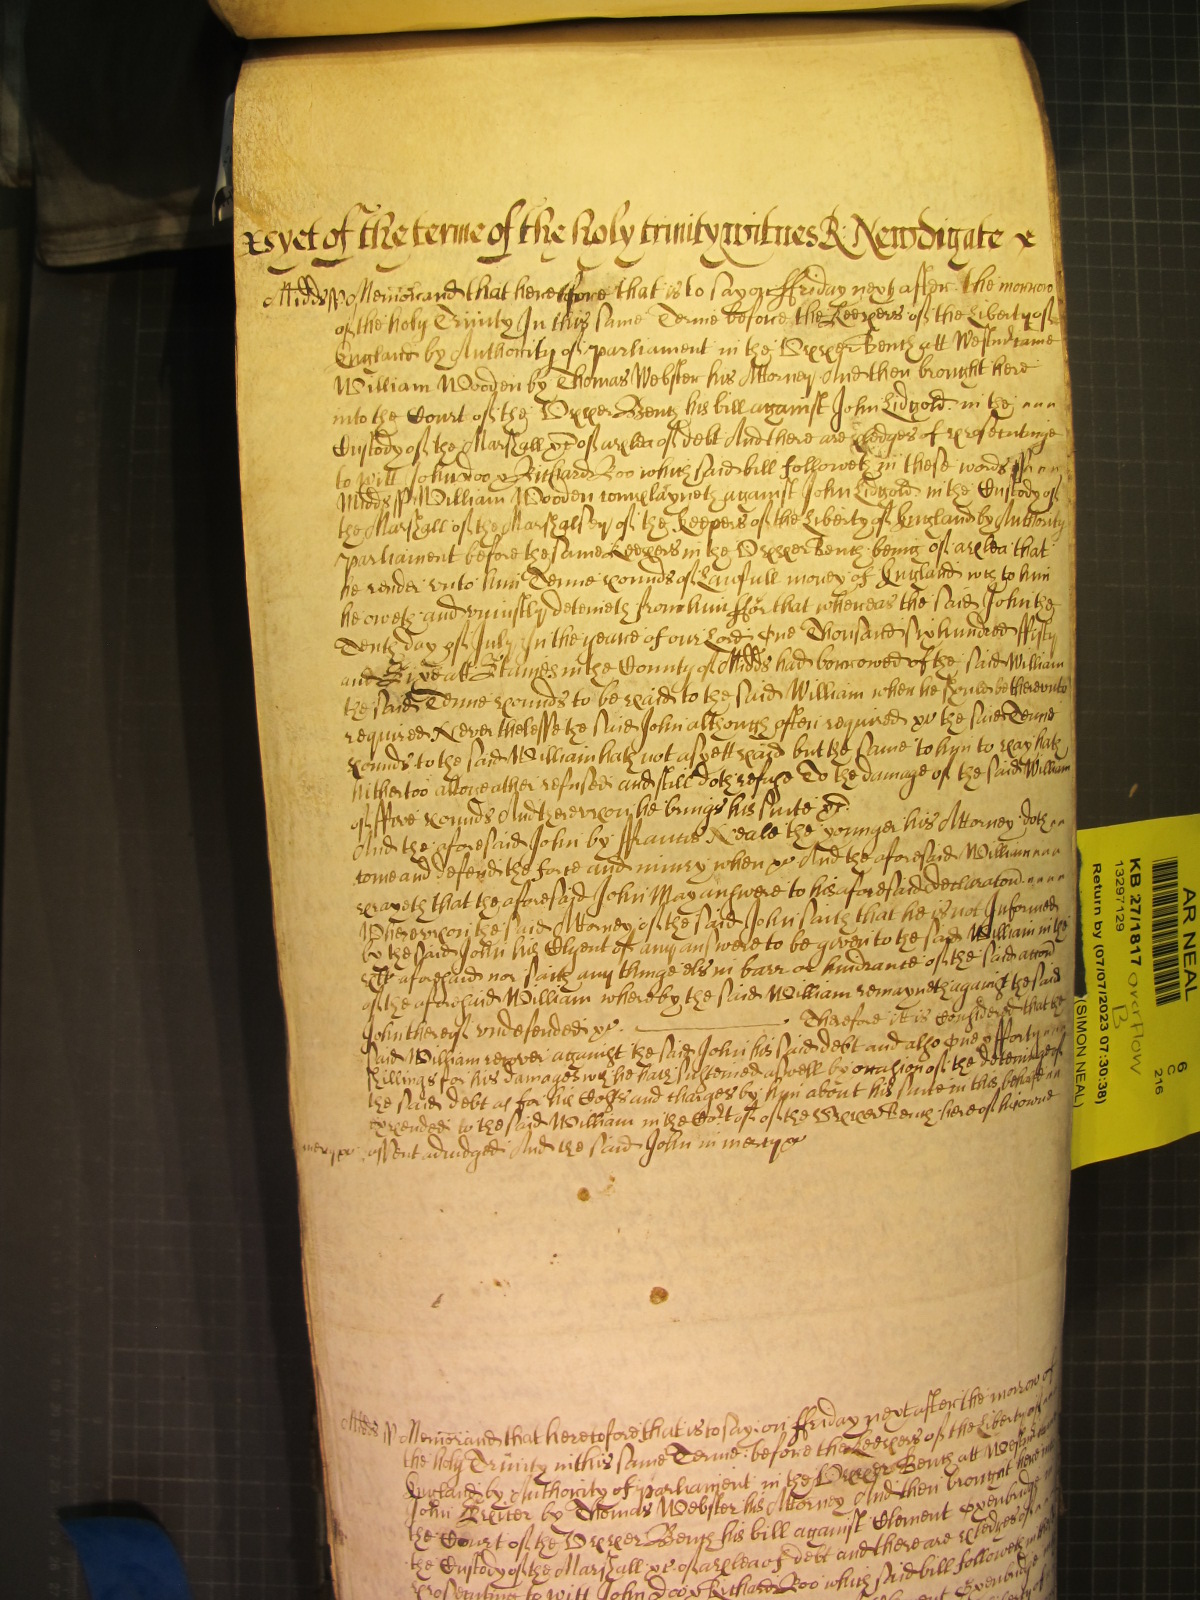 xs yet of the terme of the holy trinity witnes R: Newdigate x
Midds ss Memorand that heretofore that is to say on ffriday next after the morrow
of the holy Trinity In this same Terme before the Keepers of the Liberty of
England by Authority of parliament in the Upper Bench att Westm came
William Wooden by Thomas Webster his Attorney And then brought here
into the Court of the Upper Bench his bill against John Lidgold in the
Custody of the Marshall &c of a plea of debt And there are pledges of prosecutinge
to witt John Doo & Richard Roo which said bill followeth in these words ss
Midds ss William Wooden complayneth against John Lidgold in the Custody of
the Marshall of the Marshalsey of the Keepers of the Liberty of England by Authority
parliament before the same Keepers in the Upper Bench being of a plea that
he render unto him Tenne pounds of Laufull money of England wch to him
he oweth and uniustly deteineth from him ffor that whereas the said John the
Tenth day of July In the yeare of our Lord One Thousand six hundred ffifty
and att Staines in the County of Midds had borrowed of the said William
the said Tenne pounds to be paid to the said William when he should be thereunto
required Neverthelesse the said John although often required &c the said Tenne
pounds to the said William hath not as yett paid but the same to him to pay hath
hithertoo altogeather refused and still doth refuse To the damage of the said William
of ffive pounds And thereupon he brings his suite &c
And the aforesaid John by ffrancis Neale the younger his Attorney doth
come and defend the force and iniury when &c And the aforesaid William
prayeth that the aforesaid John May answere to his aforesaid declaracon
Whereupon the said Attorney of the said John saith that he is not Informed
by the said John his Clyent of any answere to be given to the said William in the
aforesaid nor saith any thinge els in barr or hindrance of the said accon
of the aforesaid William whereby the said William remayneth against the said
John thereof undefended &c Therefore it is Considered that the
said William recover against the said John his said debt and also
shillings for his damages wch he hath susteined aswell by occasion of the deteininge of
the said debt as for his Costs and charges by him about his suite in this behalfe
expended to the said William in the Court of the Upper Bench here of his owne
mercy &c assent adiudged And the said John in mercy &c
Midds ss Memorand that heretofore that is to say on ffriday next after the morrow of
the holy Trinity in this same Terme before the Keepers of the Liberty of
England by Authority of parliament in the Upper Bench att Westm
John by Thomas Webster his Attorney And then brought here into
the Court of the Upper Bench his bill against Clement Oxenbridge
the Custody of the Marshall &c of a plea of debt and there are pledges of
prosecuting to witt John Doo & Richard Roo which said bill followeth
Oxenbridge
AR NEAL
KB 27/1817 overflow
B
13297129
Return by (07/07/2023 07:30:38)
(SIMON NEAL)
6
C
216